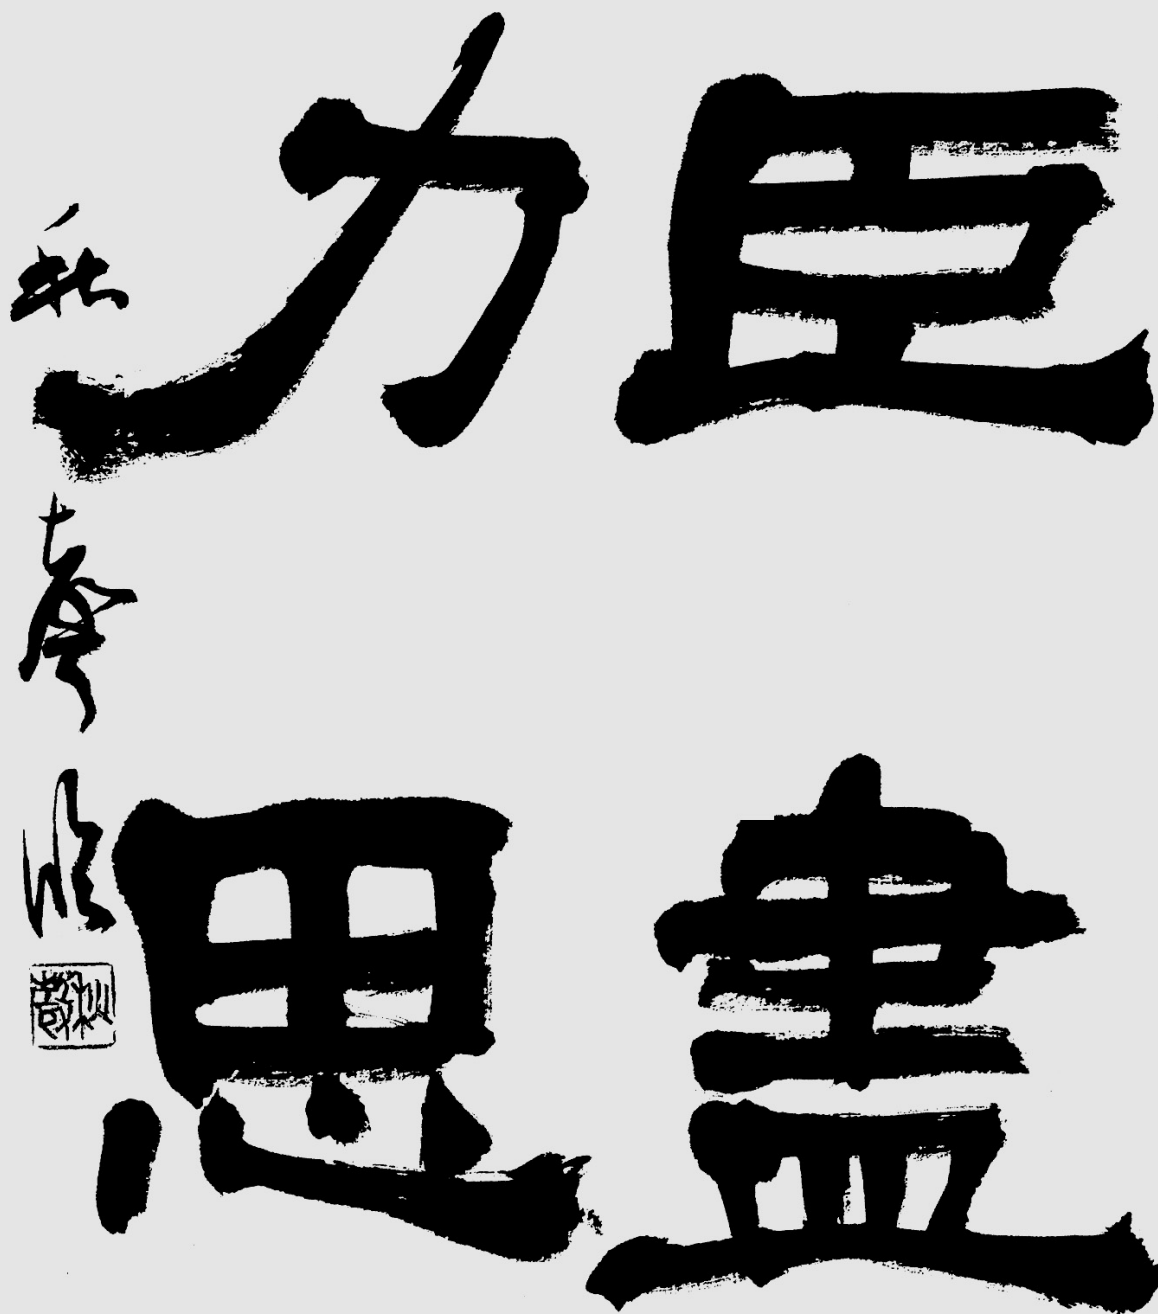 臣盡
力思
秋